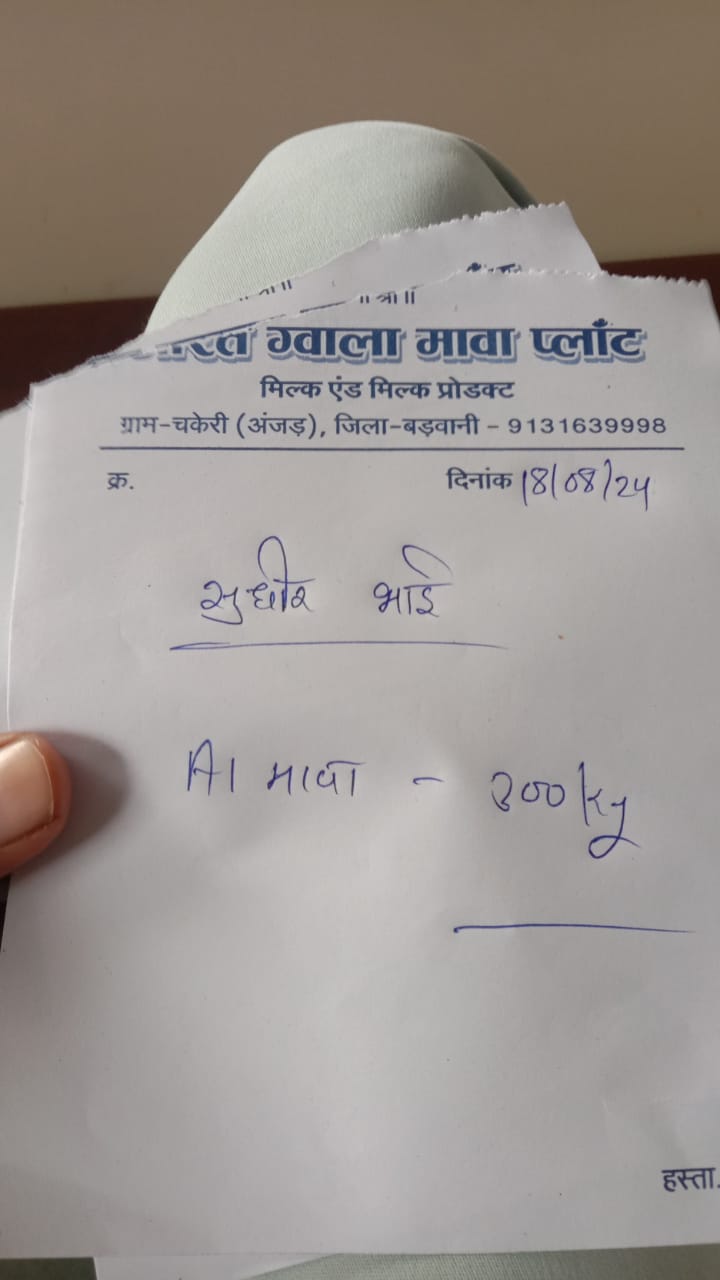 ॥ श्री ॥
भारत ग्वाला मावा प्लाँट
मिल्क एंड मिल्क प्रोडक्ट
ग्राम-चकेरी (अंजड़), जिला-बड़वानी - 9131639998
क्र. दिनांक 18/08/24
सुधीर भाई
A1 मावा - 300 kg
हस्ता.